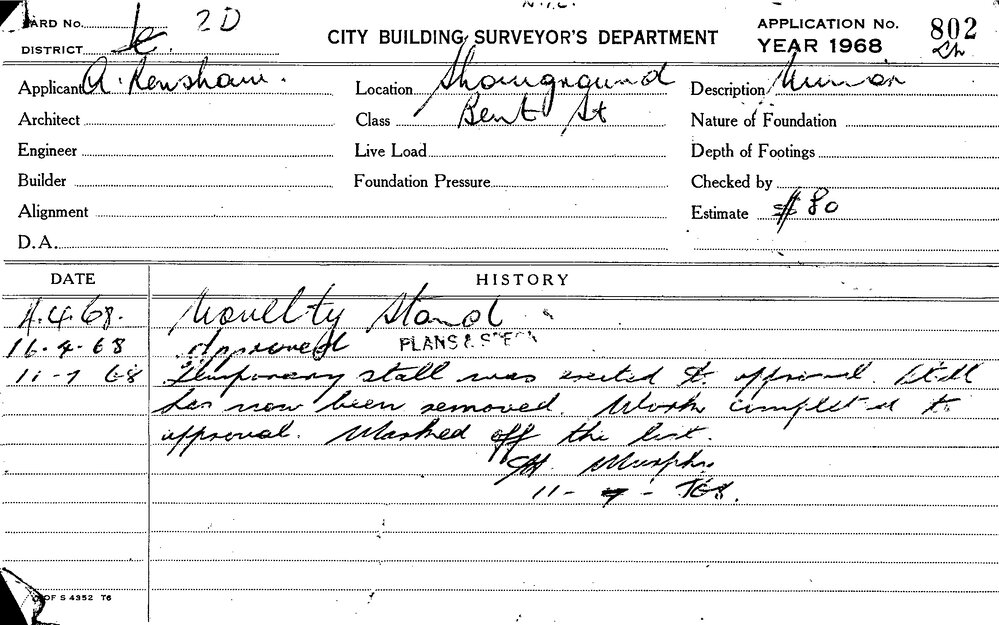 CARD No. 2D
DISTRICT
CITY BUILDING SURVEYOR'S DEPARTMENT
APPLICATION No. 802
YEAR 1968
Applicant A. Renshaw.
Location Showground
Description Minor
Architect
Class Bent St
Nature of Foundation
Engineer
Live Load
Depth of Footings
Builder
Foundation Pressure
Checked by
Alignment
Estimate $80
D.A.
DATE HISTORY
4.4.68. Novelty Stand
16-4-68 Approved PLANS & SPECN
11-7 68 Temporary stall was erected to approval. Stall
has now been removed. Work completed to
approval. Marked off the list.
Murphy
11-7-68.
OF S 4352 T6